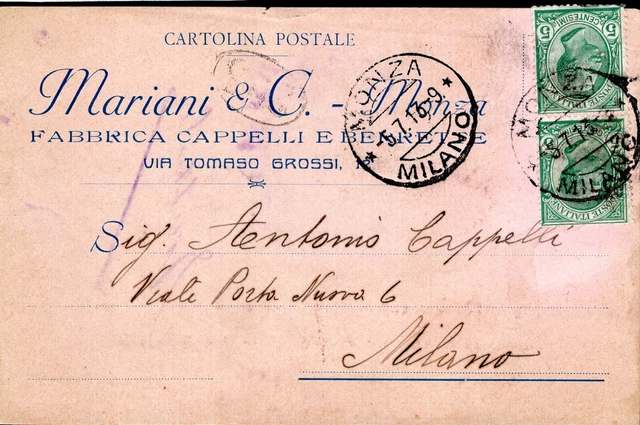 CARTOLINA POSTALE
Mariani & C. - Monza
FABBRICA CAPPELLI E BERRETTE
VIA TOMASO GROSSI,
MONZA
MILANO
5
CENTESIMI
POSTE ITALIANE
MILANO
POSTE ITALIANE
Sig. Antonio Cappelli
Viale Porta Nuova 6
Milano